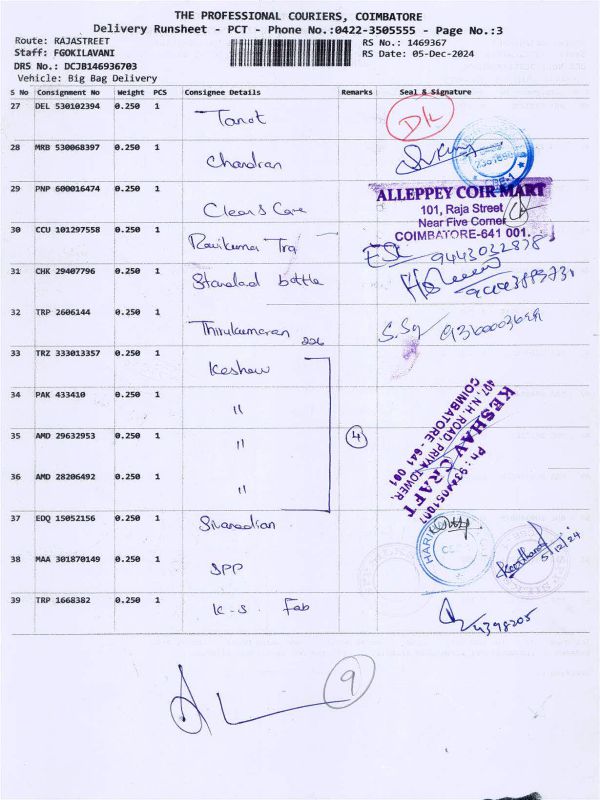 THE PROFESSIONAL COURIERS, COIMBATORE
Delivery Runsheet - PCT - Phone No.:0422-3505555 - Page No.:3
Route: RAJASTREET RS No.: 1469367
Staff: FGOKILAVANI RS Date: 05-Dec-2024
DRS No.: DCJB146936703
Vehicle: Big Bag Delivery
S No Consignment No Weight PCS Consignee Details Remarks Seal & Signature
27 DEL 530102394 0.250 1 Tanot
28 MRB 530068397 0.250 1 Chandran
29 PNP 600016474 0.250 1 Clean & Care
ALLEPPEY COIR MART
101, Raja Street
Near Five Corner
COIMBATORE-641 001.
30 CCU 101297558 0.250 1 Ravikumar Tra 9443032878
31 CHK 29407796 0.250 1 Standad bottle
32 TRP 2606144 0.250 1 Thirukumaran 226
33 TRZ 333013357 0.250 1 Keshav
34 PAK 433410 0.250 1 "
35 AMD 29632953 0.250 1 " 4
36 AMD 28206492 0.250 1 "
KESHAV CRAFT
407, N.H. ROAD, PRIYA TOWER,
COIMBATORE - 641 001
37 EDQ 15052156 0.250 1
38 MAA 301870149 0.250 1 SPP 5/12/24
39 TRP 1668382 0.250 1 K.S. Fab 4398205
9